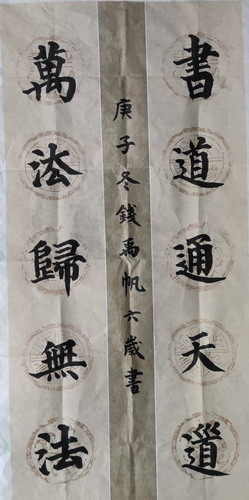 書道通天道
萬法歸無法
庚子冬錢禹帆六歲書